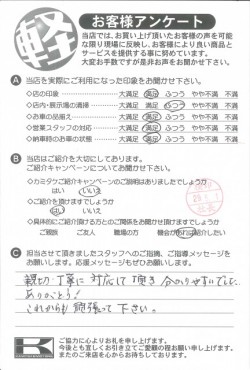 軽
お客様アンケート
当店では、お買い上げ頂いたお客様の声を可能
な限り現場に反映し、お客様により良い商品と
サービスを提供する事に努めています。
大変お手数ですが是非お声をお聞かせ下さい。
A 当店を実際にご利用になった印象をお聞かせ下さい。
◇店の印象 大満足 満足 ふつう やや不満 不満
◇店内・展示場の清掃 大満足 満足 ふつう やや不満 不満
◇お車の品揃え 大満足 満足 ふつう やや不満 不満
◇営業スタッフの対応 大満足 満足 ふつう やや不満 不満
◇納車時のお車の状態 大満足 満足 ふつう やや不満 不満
B 当店はご紹介を大切にしております。
ご紹介キャンペーンについてお聞かせ下さい。
◇カミタケご紹介キャンペーンのご説明はありましたでしょうか
はい いいえ
◇ご紹介を頂けますでしょうか
はい いいえ
◇具体的にご紹介頂ける方とのご関係をお聞かせ頂けますでしょうか
ご親戚 ご友人 職場の方 機会があれば紹介したい
C 担当させて頂きましたスタッフへのご指摘、ご指導メッセージを
お願いします。応援メッセージもぜひお願いします。
親切・丁寧に対応して頂き分かりやすいでした。
ありがとう!
これからも頑張って下さい。
K
ご協力に心よりお礼を申し上げます。
今後とも宜しくお引き立てご愛顧の程お願い申し上げます。
またのご来店を心からお待ちしております。